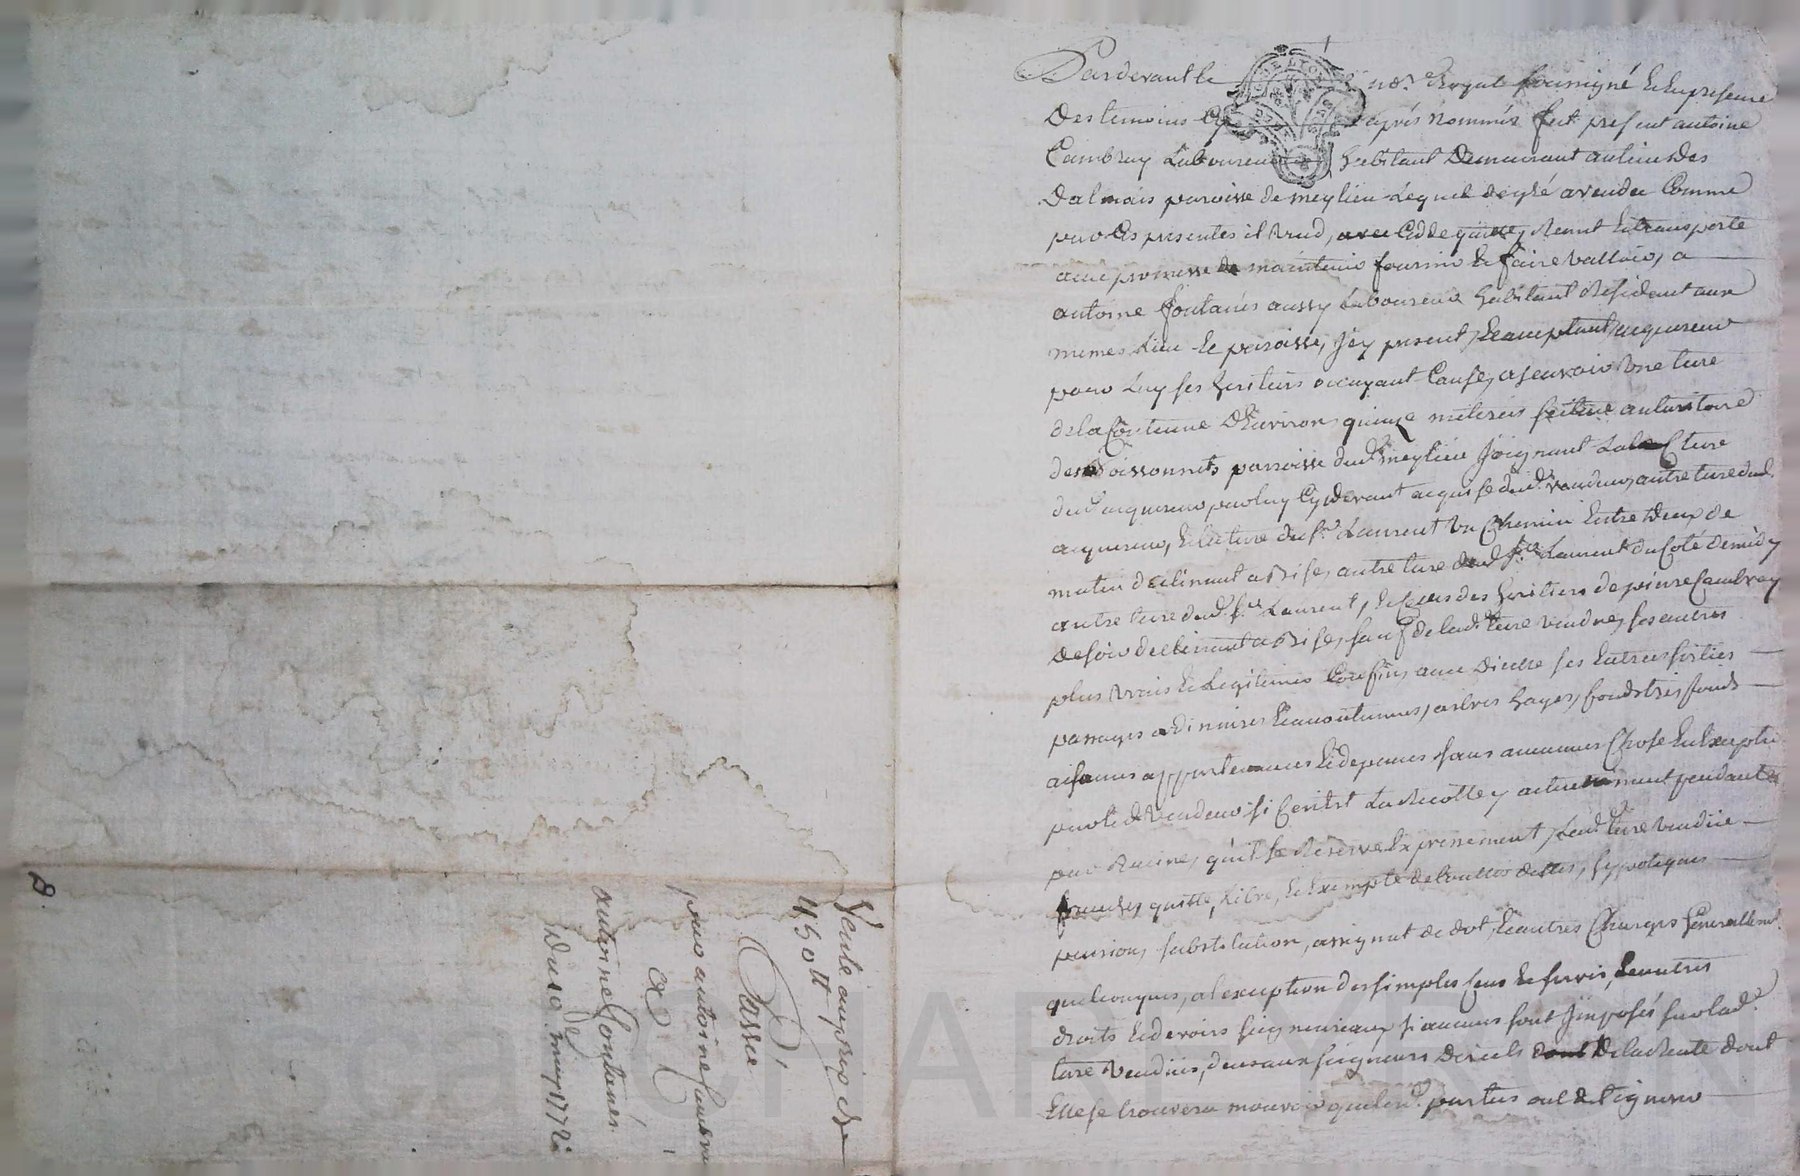 Pardevant le no.re Royal soussigné et en presence
Des temoins cy après nommés fut present antoine
Cambray Laboureur habitant Demeurant au lieu des
Dalmais paroisse de meylieu Lequel de gré a vendu Comme
par Ces presentes il vend, avec Cedde quitte, Remet et transporte
avec promesse de maintenir fournir et faire valloir, a
antoine fontanés aussy Laboureur habitant Résident aux
memes Lieu et paroisse, icy present, et acceptant, acquereur
pour Luy ses heritiers ou ayant Cause, a scavoir Une terre
de la Contenue D'environ quinze
des paroisse dud. meylieu Joignant La terre
dud. acquereur par luy Cy devant acquise dud. vendeur, autre terre dud.
acquereur, et la terre du Sr. Laurent Un Chemin Entre Deux de
matin declinant a Bise, autre terre dud. Sr. Laurent du Coté de midy
autre terre dud. Sr. Laurent, et Celles des heritiers de pierre Cambray
De soir declinant a Bise, sauf de lad. terre vendue, ses autres
plus vrais et Legitimes Confins, avec Dicelle ses Entrees sorties
passages ordinaires et accoutumes, arbres hayes, fonds tres fonds
aisances appartenances et dependances sans aucune Chose En Excepter
par led. Vendeur si Ce n'est La Recolte y actuellement pendante
par Racine, qu'il se Reserve Expressement, Lad. terre vendue
franche, quitte, Libre, et Exempte de touttes dettes, hypoteques
pension, substitution, assignat de dot, et autres Charges Generallement
quelconques, a l'exception des simples Cens et servis, et autres
droits et devoirs seigneuriaux si aucuns sont Imposés sur lad.
terre Vendue, deus aux seigneurs Directs de la Rente dont
Elle se trouvera mouvoir que lesd. parties ont dit ignorer
Vente au prix de
450 tt
Passée
par antoine Cambray
a
antoine fontanés
Du 10 may 1772
8.